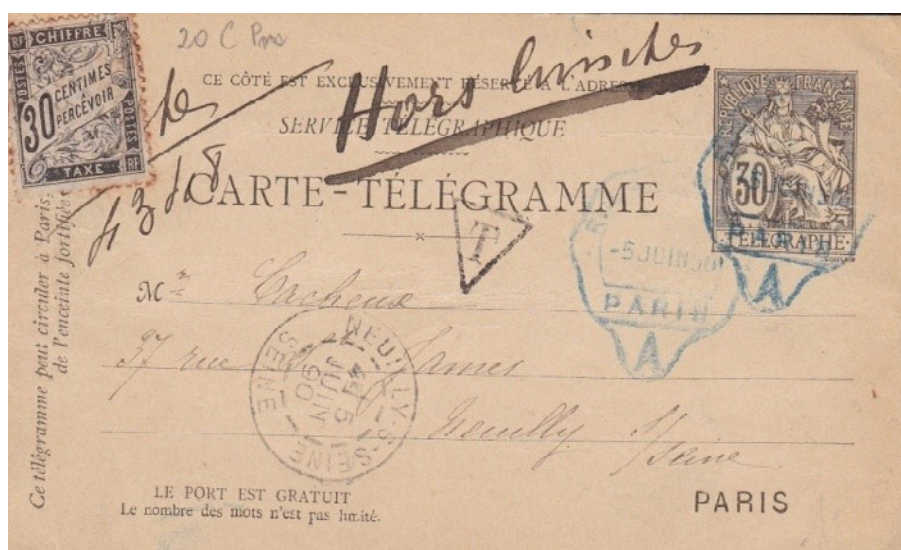 20 C Pns
RF CHIFFRE
POSTES
30 CENTIMES
PERCEVOIR
POSTES
TAXE RF
CE CÔTÉ EST EXCLUSIVEMENT RÉSERVÉ A L'ADRESSE
Hors limites
SERVICE TÉLÉGRAPHIQUE
CARTE-TÉLÉGRAMME
RÉPUBLIQUE FRANÇAISE
30
TÉLÉGRAPHE
PARIS
A
T
-5 JUIN 90
PARIS
A
Ce télégramme peut circuler à Paris,
de l'enceinte fortifiée
Mr Cacheux
37 rue St James
Neuilly S/Seine
NEUILLY-S-SEINE
5
JUIN
90
SEINE
LE PORT EST GRATUIT
Le nombre des mots n'est pas limité.
PARIS